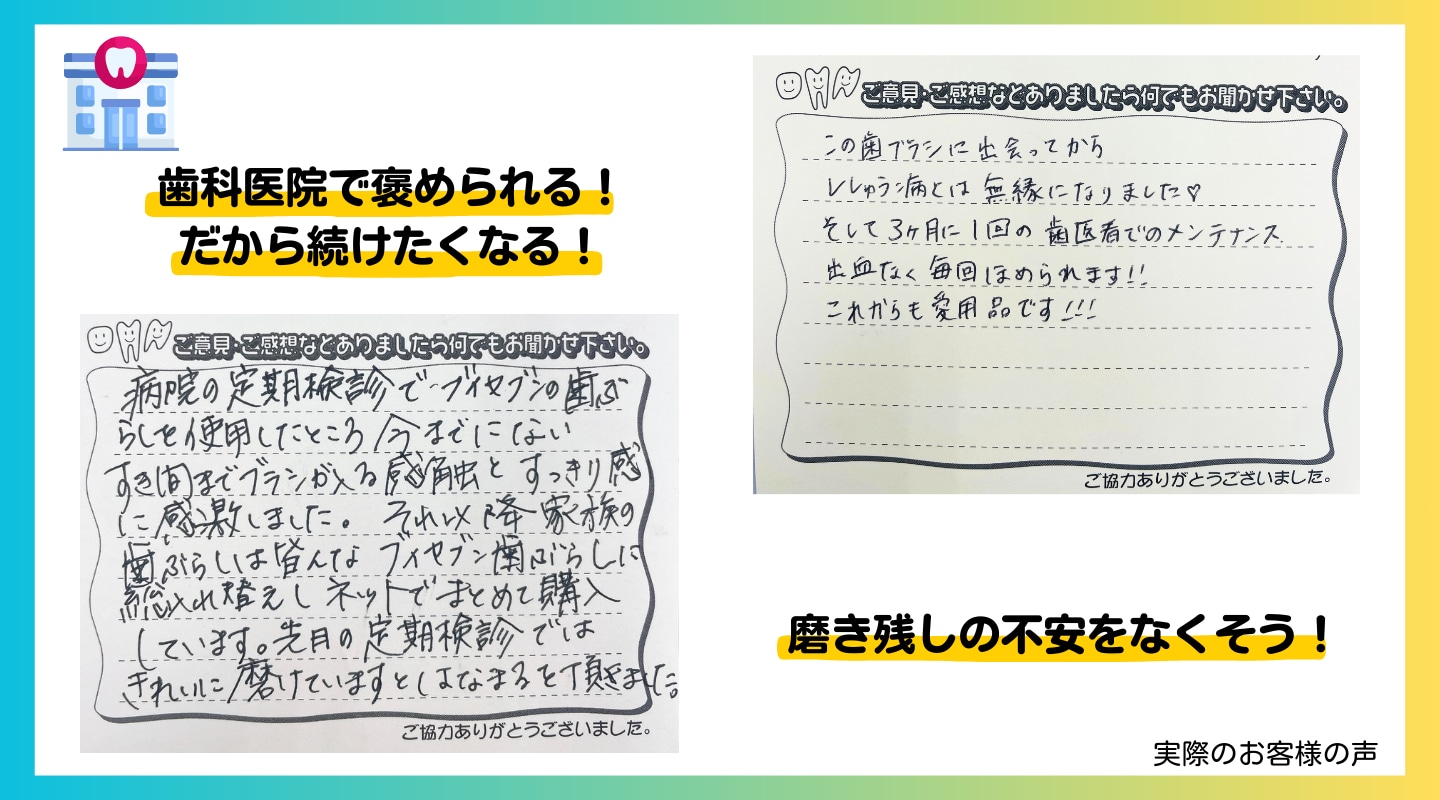 歯科医院で褒められる！
だから続けたくなる！
ご意見・ご感想などありましたら何でもお聞かせ下さい。
病院の定期検診でブイセブンの歯ぶ
らしを使用したところ今までにない
すき間までブラシが入る感触とすっきり感
に感激しました。それ以降家族の
歯ぶらしは皆んなブイセブン歯ぶらしに
総入れ替えしネットでまとめて購入
しています。先月の定期検診では
きれいに磨けていますとはなまるを頂きました。
ご協力ありがとうございました。
ご意見・ご感想などありましたら何でもお聞かせ下さい。
この歯ブラシに出会ってから
ししゅうう病とは無縁になりました♡
そして3ヶ月に1回の歯医者でのメンテナンス
出血なく毎回ほめられます!!
これからも愛用品です!!!
ご協力ありがとうございました。
磨き残しの不安をなくそう！
実際のお客様の声